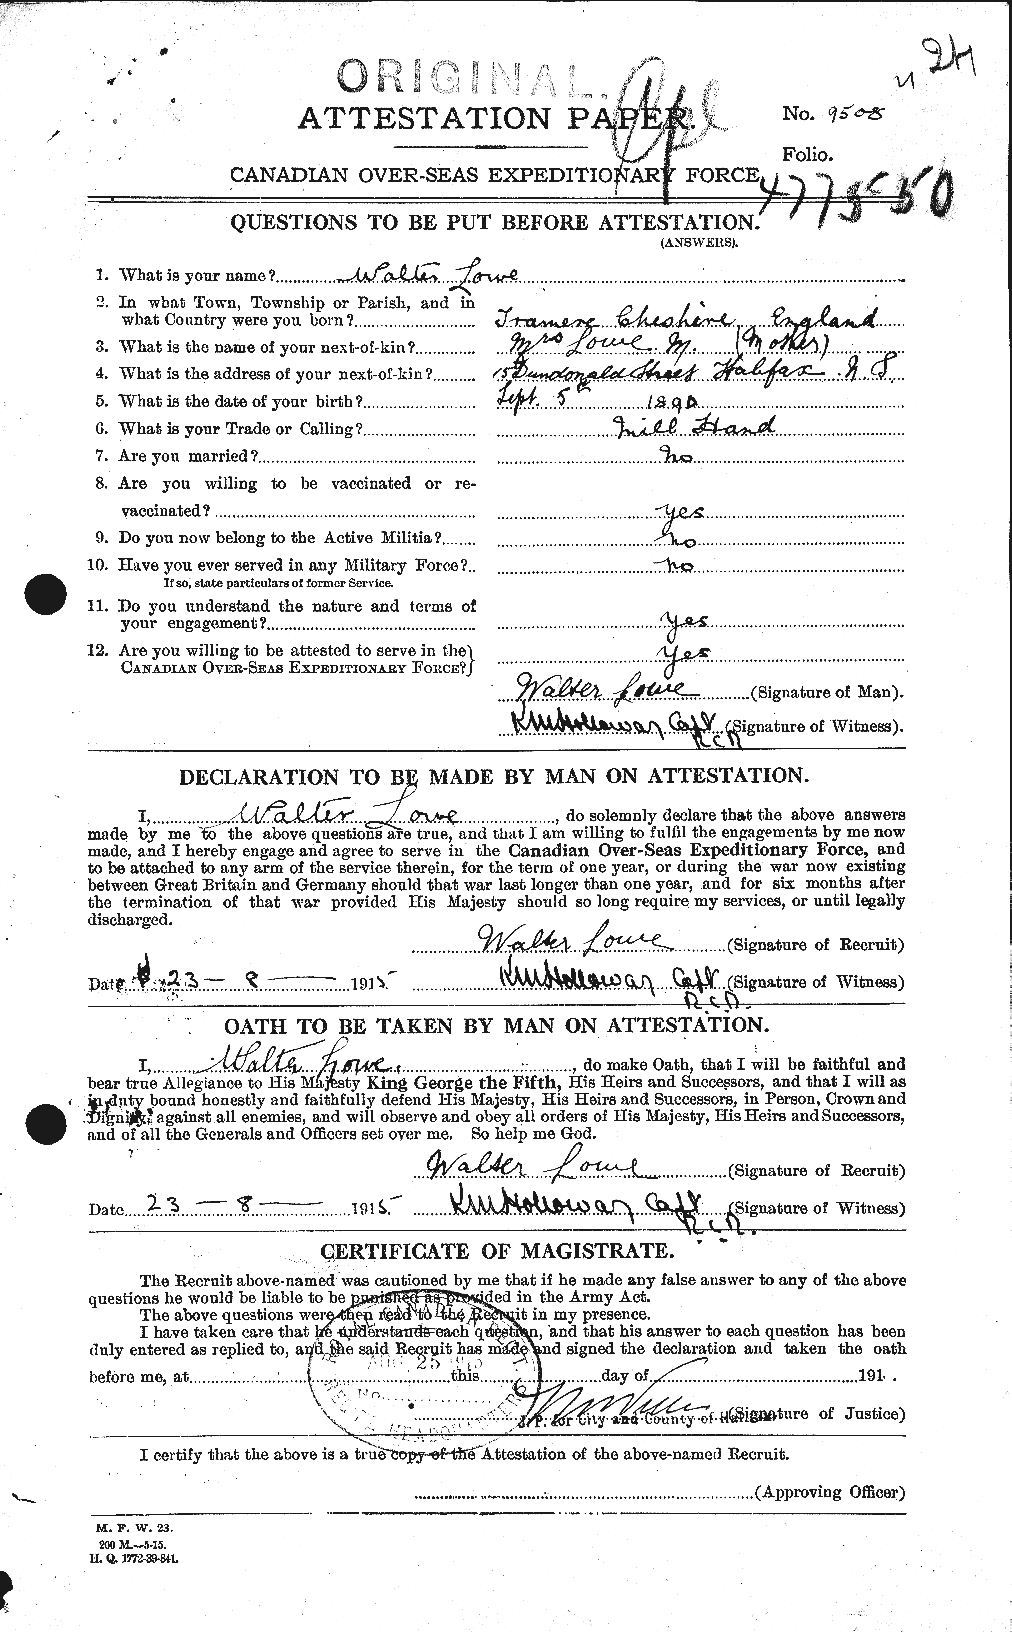 24
ORIGINAL.
ATTESTATION PAPER.
No. 9508
Folio.
CANADIAN OVER-SEAS EXPEDITIONARY FORCE
477550
QUESTIONS TO BE PUT BEFORE ATTESTATION.
(ANSWERS).
1. What is your name? Walter Lowe
2. In what Town, Township or Parish, and in
what Country were you born? Tranere Cheshire, England
3. What is the name of your next-of-kin? Mrs Lowe M. (Mother)
4. What is the address of your next-of-kin? 15 Dundonald Street Halifax N S
5. What is the date of your birth? Sept. 5th 1890
6. What is your Trade or Calling? Mill Hand
7. Are you married? no
8. Are you willing to be vaccinated or re-
vaccinated? yes
9. Do you now belong to the Active Militia? no
10. Have you ever served in any Military Force? no
If so, state particulars of former Service.
11. Do you understand the nature and terms of
your engagement? yes
12. Are you willing to be attested to serve in the
CANADIAN OVER-SEAS EXPEDITIONARY FORCE? yes
Walter Lowe (Signature of Man).
Capt (Signature of Witness).
R.C.R
DECLARATION TO BE MADE BY MAN ON ATTESTATION.
I, Walter Lowe, do solemnly declare that the above answers
made by me to the above questions are true, and that I am willing to fulfil the engagements by me now
made, and I hereby engage and agree to serve in the Canadian Over-Seas Expeditionary Force, and
to be attached to any arm of the service therein, for the term of one year, or during the war now existing
between Great Britain and Germany should that war last longer than one year, and for six months after
the termination of that war provided His Majesty should so long require my services, or until legally
discharged.
Walter Lowe (Signature of Recruit)
Date 23 - 8 - 1915 Capt (Signature of Witness)
R.C.R.
OATH TO BE TAKEN BY MAN ON ATTESTATION.
I, Walter Lowe, do make Oath, that I will be faithful and
bear true Allegiance to His Majesty King George the Fifth, His Heirs and Successors, and that I will as
in duty bound honestly and faithfully defend His Majesty, His Heirs and Successors, in Person, Crown and
Dignity, against all enemies, and will observe and obey all orders of His Majesty, His Heirs and Successors,
and of all the Generals and Officers set over me. So help me God.
Walter Lowe (Signature of Recruit)
Date 23 - 8 - 1915 Capt (Signature of Witness)
R.C.R.
CERTIFICATE OF MAGISTRATE.
The Recruit above-named was cautioned by me that if he made any false answer to any of the above
questions he would be liable to be punished as provided in the Army Act.
The above questions were then read to the Recruit in my presence.
I have taken care that he understands each question, and that his answer to each question has been
duly entered as replied to, and the said Recruit has made and signed the declaration and taken the oath
before me, at this day of 191 .
(Signature of Justice)
J.P. for City and County of Halifax
I certify that the above is a true copy of the Attestation of the above-named Recruit.
(Approving Officer)
M. F. W. 23.
200 M.-5-15.
H. Q. 1772-39-841.